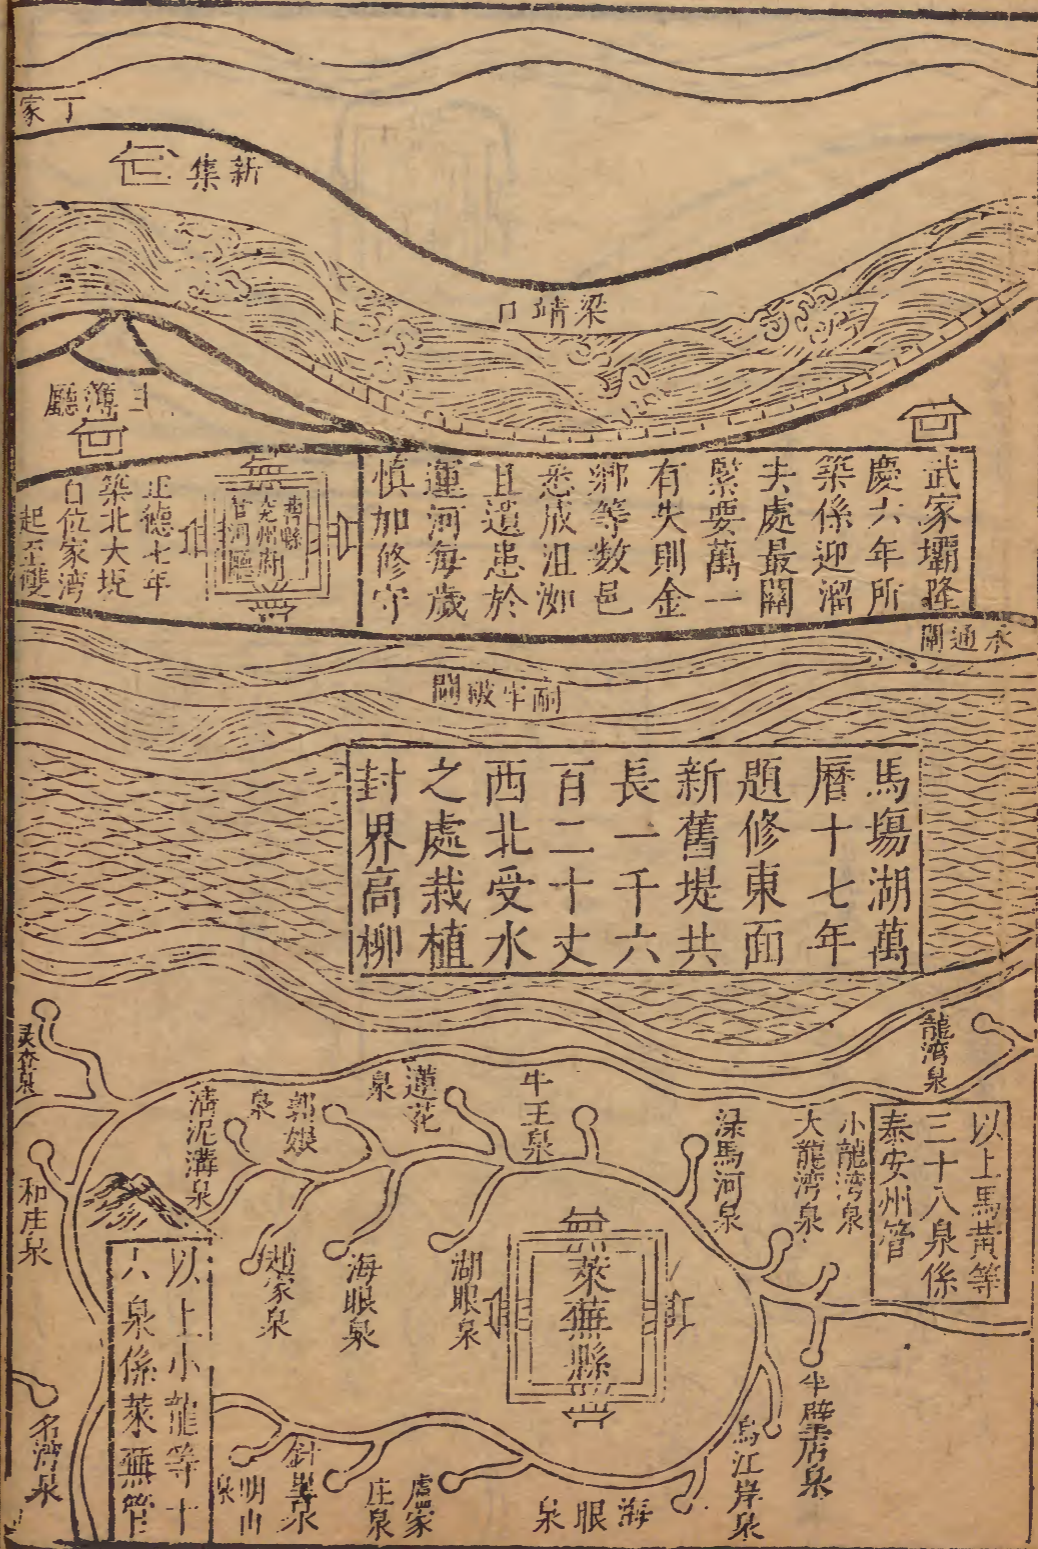 丁家
新集
梁靖口
主簿廳
武家壩隆
慶六年所
築係迎溜
去處最關
緊要萬一
有失則金
鄉等數邑
悉成沮洳
且遺患於
運河每歲
慎加修守
曹縣
兗州府
管河廳
正德七年
築北大堤
自位家湾
起至雙
永通閘
耐牢破閘
馬塲湖萬
曆十七年
題修東面
新舊堤共
長一千六
百二十丈
西北受水
之處栽植
封界高柳
龍湾泉
以上馬黃等
三十八泉係
泰安州管
小龍湾泉
大龍湾泉
渌馬河泉
牛王泉
蓮花泉
郭娘泉
清泥溝泉
灵查泉
和庄泉
趙家泉
海眼泉
湖眼泉
萊蕪縣
半壁店泉
烏江岸泉
海眼泉
盧家庄泉
針里泉
明山泉
以上小龍等十
六泉係萊蕪管
名湾泉